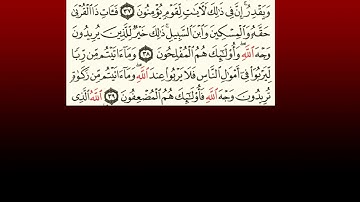 وَيَقْدِرُ إِنَّ فِي ذَٰلِكَ لَآيَٰتٍ لِّقَوْمٍ يُؤْمِنُونَ ٣٧ فَـَٔاتِ ذَا ٱلْقُرْبَىٰ
حَقَّهُۥ وَٱلْمِسْكِينَ وَٱبْنَ ٱلسَّبِيلِ ذَٰلِكَ خَيْرٌ لِّلَّذِينَ يُرِيدُونَ
وَجْهَ ٱللَّهِ وَأُو۟لَٰٓئِكَ هُمُ ٱلْمُفْلِحُونَ ٣٨ وَمَآ ءَاتَيْتُم مِّن رِّبًا
لِّيَرْبُوَا۟ فِىٓ أَمْوَٰلِ ٱلنَّاسِ فَلَا يَرْبُوا۟ عِندَ ٱللَّهِ وَمَآ ءَاتَيْتُم مِّن زَكَوٰةٍ
تُرِيدُونَ وَجْهَ ٱللَّهِ فَأُو۟لَٰٓئِكَ هُمُ ٱلْمُضْعِفُونَ ٣٩ ٱللَّهُ ٱلَّذِى